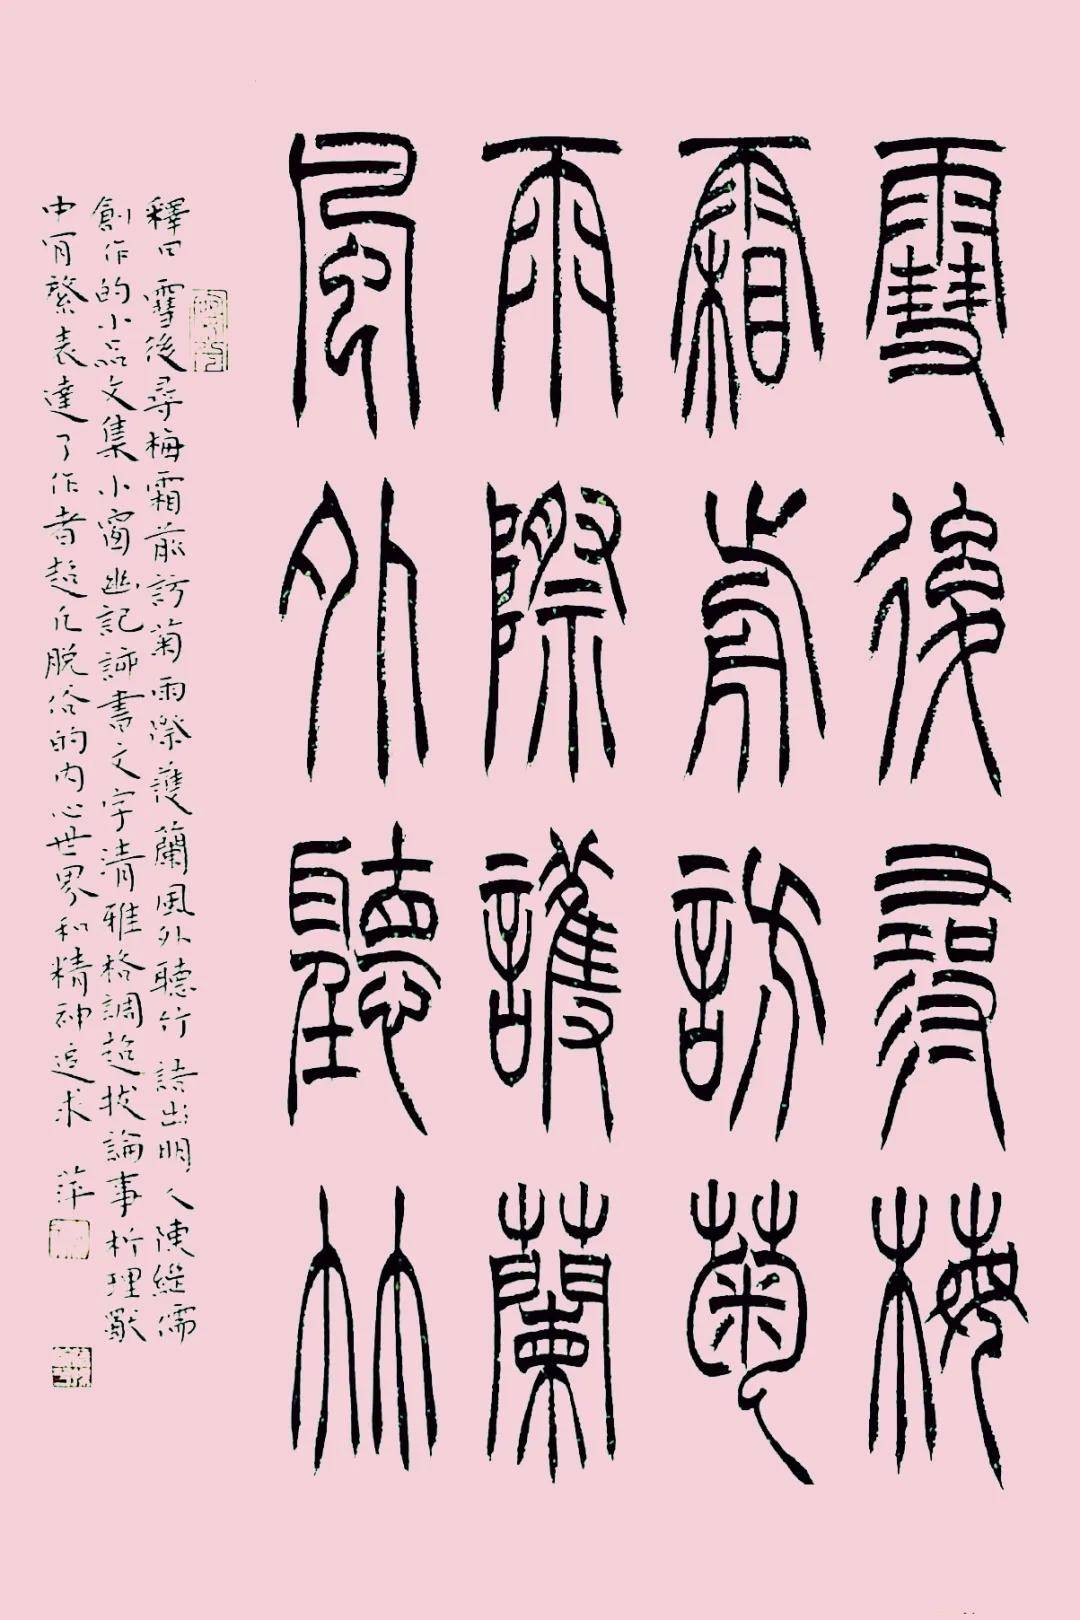 雪後尋梅
霜前訪菊
雨際護蘭
風外聽竹
釋曰 雪後尋梅霜前訪菊雨際護蘭風外聽竹 語出明人陳繼儒
創作的小品文集小窗幽記 書文字清雅格調超拔論事析理獻
中肯綮表達了作者超凡脫俗的内心世界和精神追求 萍